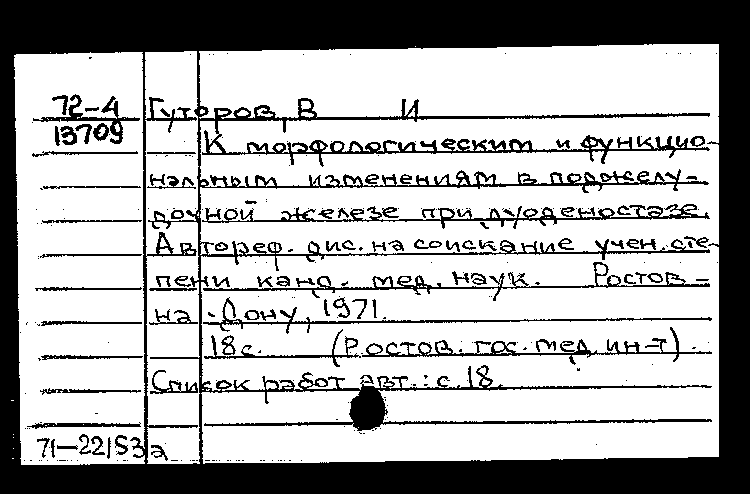 72-4 Гуторов, В И
13709
К морфологическим и функцио-
нальным изменениям в поджелу-
дочной железе при дуоденостазе.
Автореф. дис. на соискание учен. сте-
пени канд. мед. наук. Ростов-
на-Дону, 1971.
18 с. (Ростов. гос. мед. ин-т).
Список работ авт.: с. 18.
71-22153а